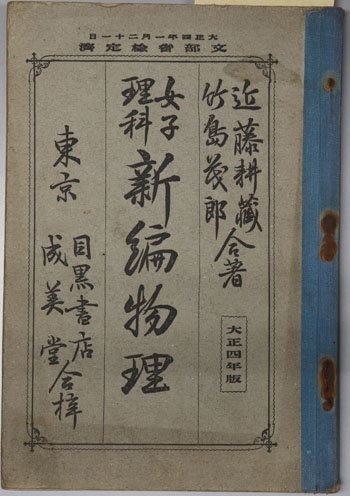 日一十二月一年四正大
濟定檢省部文
近藤耕藏
竹島茂郎
合著
大正四年版
女子
理科
新編物理
東京
目黒書店
成美堂
合梓